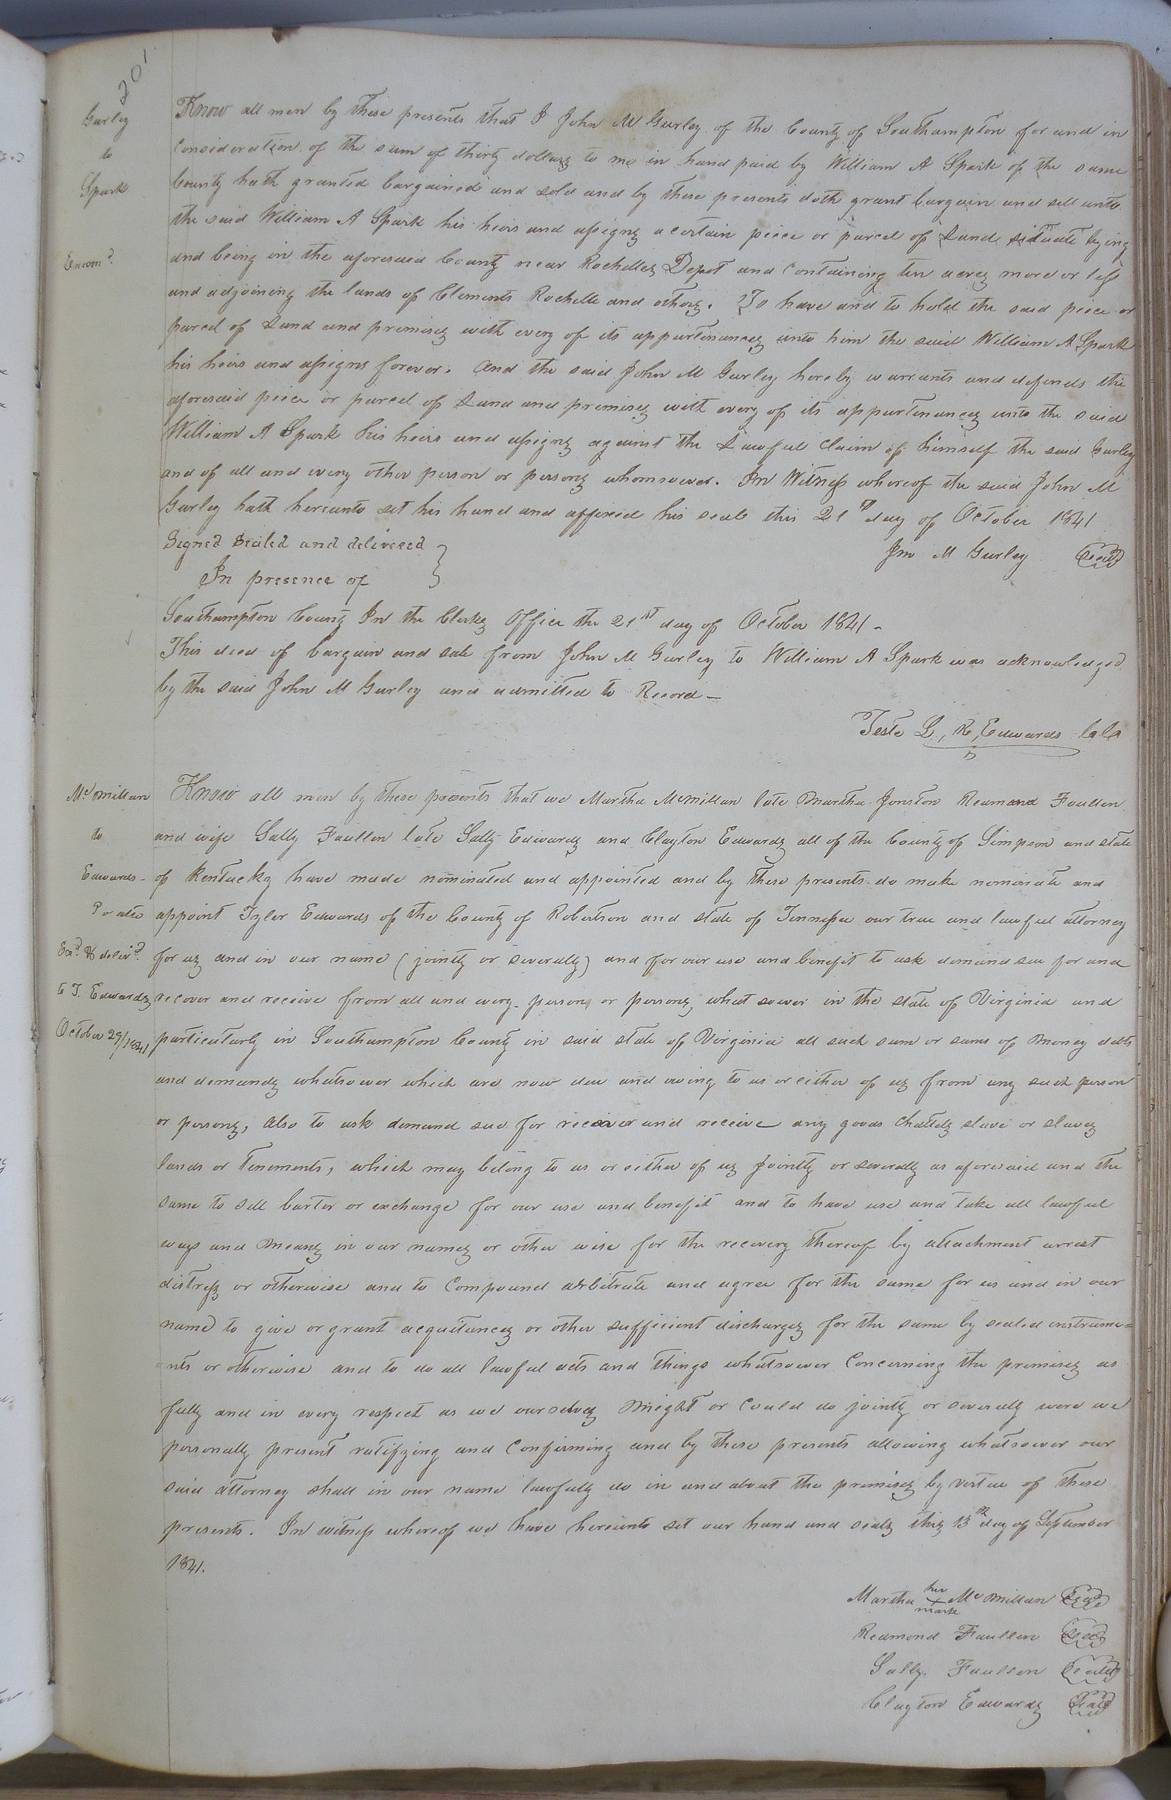 201
Gurley
to
Spark
Exam.d
Know all men by these presents that I John M Gurley of the County of Southampton for and in
consideration of the sum of thirty dollars to me in hand paid by William A Spark of the same
County hath granted bargained and sold and by these presents doth grant bargain and sell unto
the said William A Spark his heirs and assigns a certain piece or parcel of Land situate lying
and being in the aforesaid County near Rochelles Depot and Containing ten acres more or less
and adjoining the lands of Clements Rochelle and others. To have and to hold the said piece or
parcel of Land and premises with every of its appurtenances unto him the said William A Spark
his heirs and assigns forever. And the said John M Gurley hereby warrants and defends the
aforesaid piece or parcel of Land and premises with every of its appurtenances unto the said
William A Spark his heirs and assigns against the Lawful Claim of himself the said Gurley
and of all and every other person or persons whomsoever. In Witness whereof the said John M
Gurley hath hereunto set his hand and affixed his seale this 21st day of October 1841
Signed Sealed and delivered
In presence of
Jno M Gurley Seal
Southampton County In the Clerks Office the 21st day of October 1841 -
This deed of bargain and sale from John M Gurley to William A Spark was acknowledged
by the said John M Gurley and admitted to Record -
Teste L, R, Edwards
McMillan
to
Edwards -
P. atto
Exd & delivd
to T. Edwards
October 29/1841
Know all men by these presents that we Martha McMillan late Martha Jonston Reamond Faullen
and wife Sally Faullen late Sally Edwards and Clayton Edwards all of the County of Simpson and state
of Kentucky have made nominated and appointed and by these presents do make nominate and
appoint Tyler Edwards of the County of Robertson and state of Tennessee our true and lawful attorney
for us and in our name (jointly or severally) and for our use and benefit to ask demand sue for and
recover and receive from all and every person or persons what soever in the state of Virginia and
particularly in Southampton County in said state of Virginia all such sum or sums of money debts
and demands whatsoever which are now due and owing to us or either of us from any such person
or persons, also to ask demand sue for recover and receive any goods Chattels slave or slaves
lands or Tenements, which may belong to us or either of us jointly or severally as aforesaid and the
same to sell barter or exchange for our use and benefit and to have use and take all lawful
ways and means in our names or other wise for the recovery thereof by attachment arrest
distress or otherwise and to Compound arbitrate and agree for the same for us and in our
name to give or grant acquitances or other sufficient discharges for the same by sealed instrume=
nts or otherwise and to do all lawful acts and things whatsoever Concerning the premises as
fully and in every respect as we ourselves might or Could do jointly or severally were we
personally present ratifying and Confirming and by these presents allowing whatsoever our
said attorney shall in our name lawfully do in and about the premises by virtue of these
presents. In witness whereof we have hereunto set our hand and seals this 13th day of September
1841.
Martha her mark McMillan Seal
Redmond Faullen Seal
Sally Faullen Seal
Clayton Edwards Seal